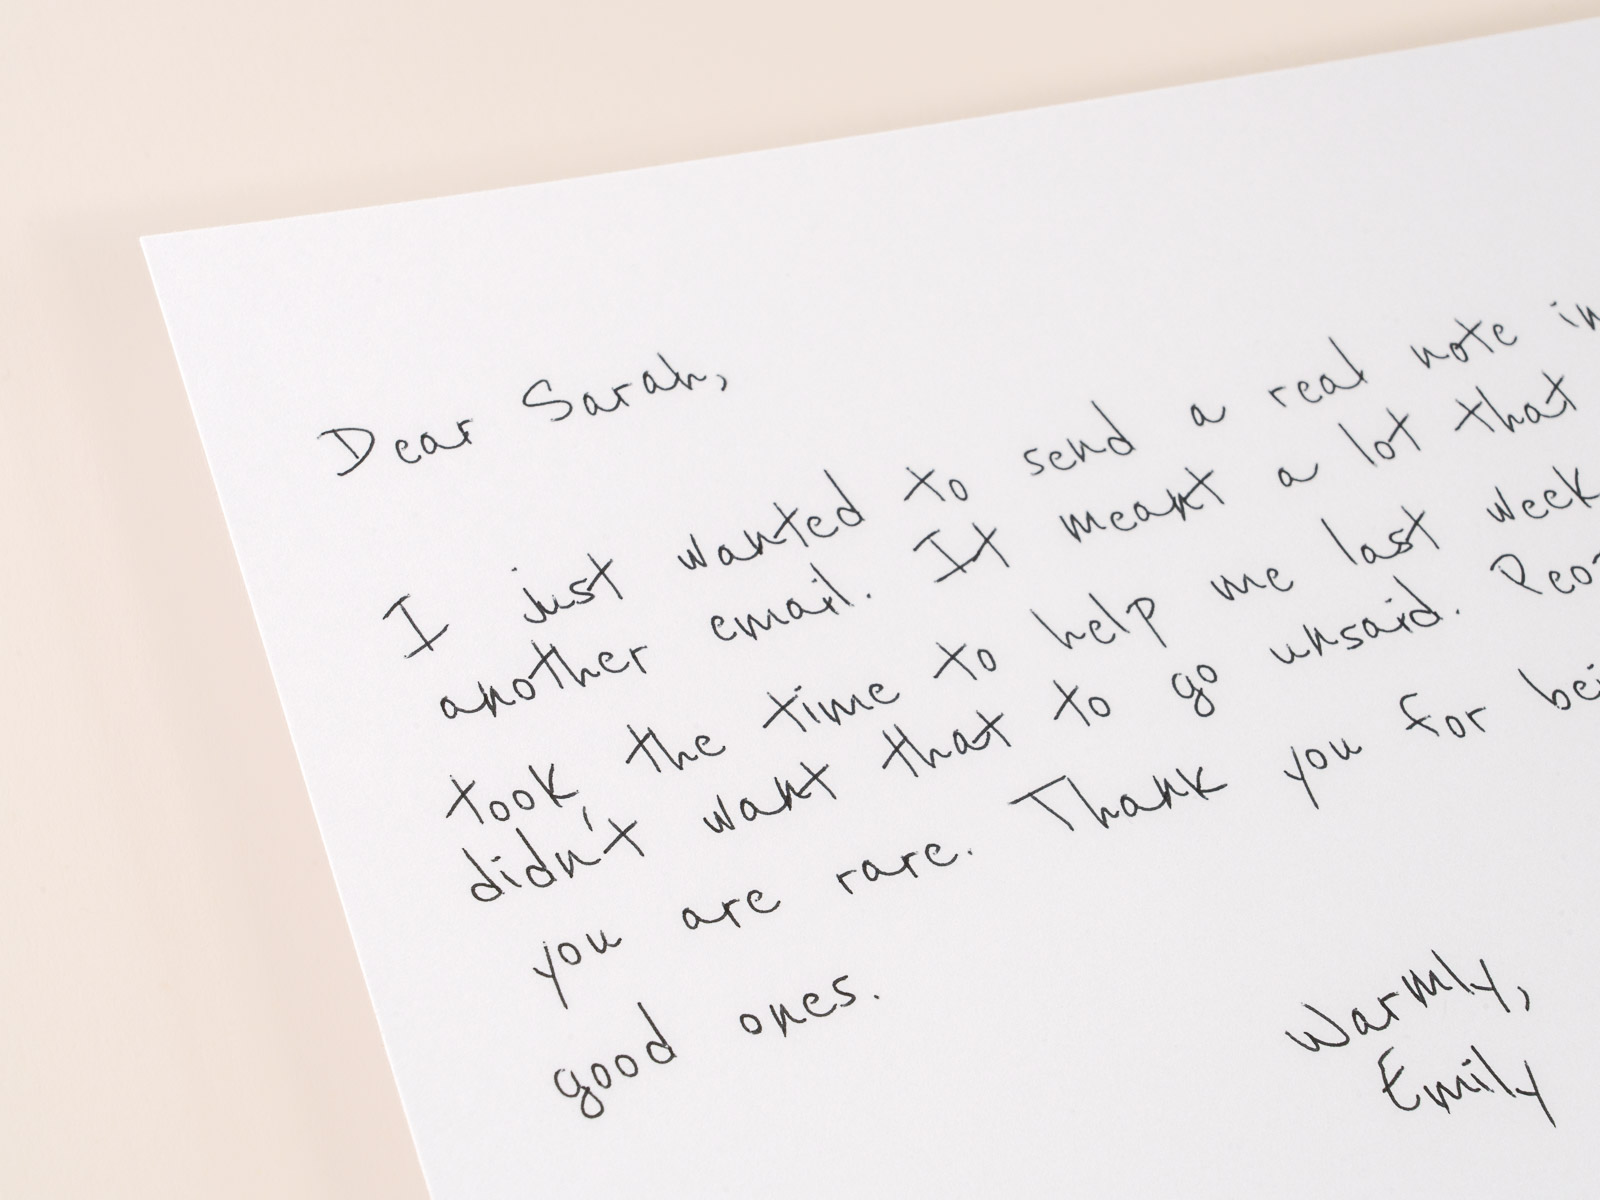 Dear Sarah,
I just wanted to send a real note
another email. It meant a lot that
took the time to help me last week
didn't want that to go unsaid.
you are rare. Thank you for
good ones.
Warmly,
Emily